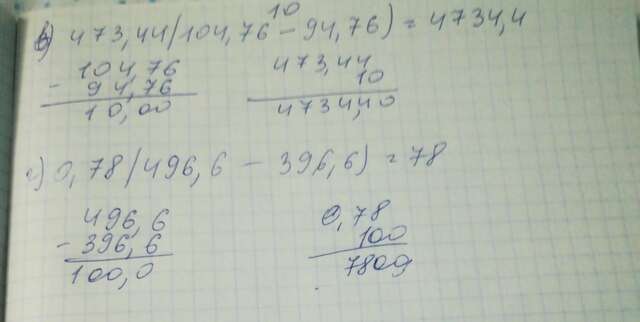 10
в) 473,44(104,76 - 94,76) = 4734,4
104,76
- 94,76
10,00
473,44
10
4734,40
г) 0,78(496,6 - 396,6) = 78
496,6
- 396,6
100,0
0,78
100
7800